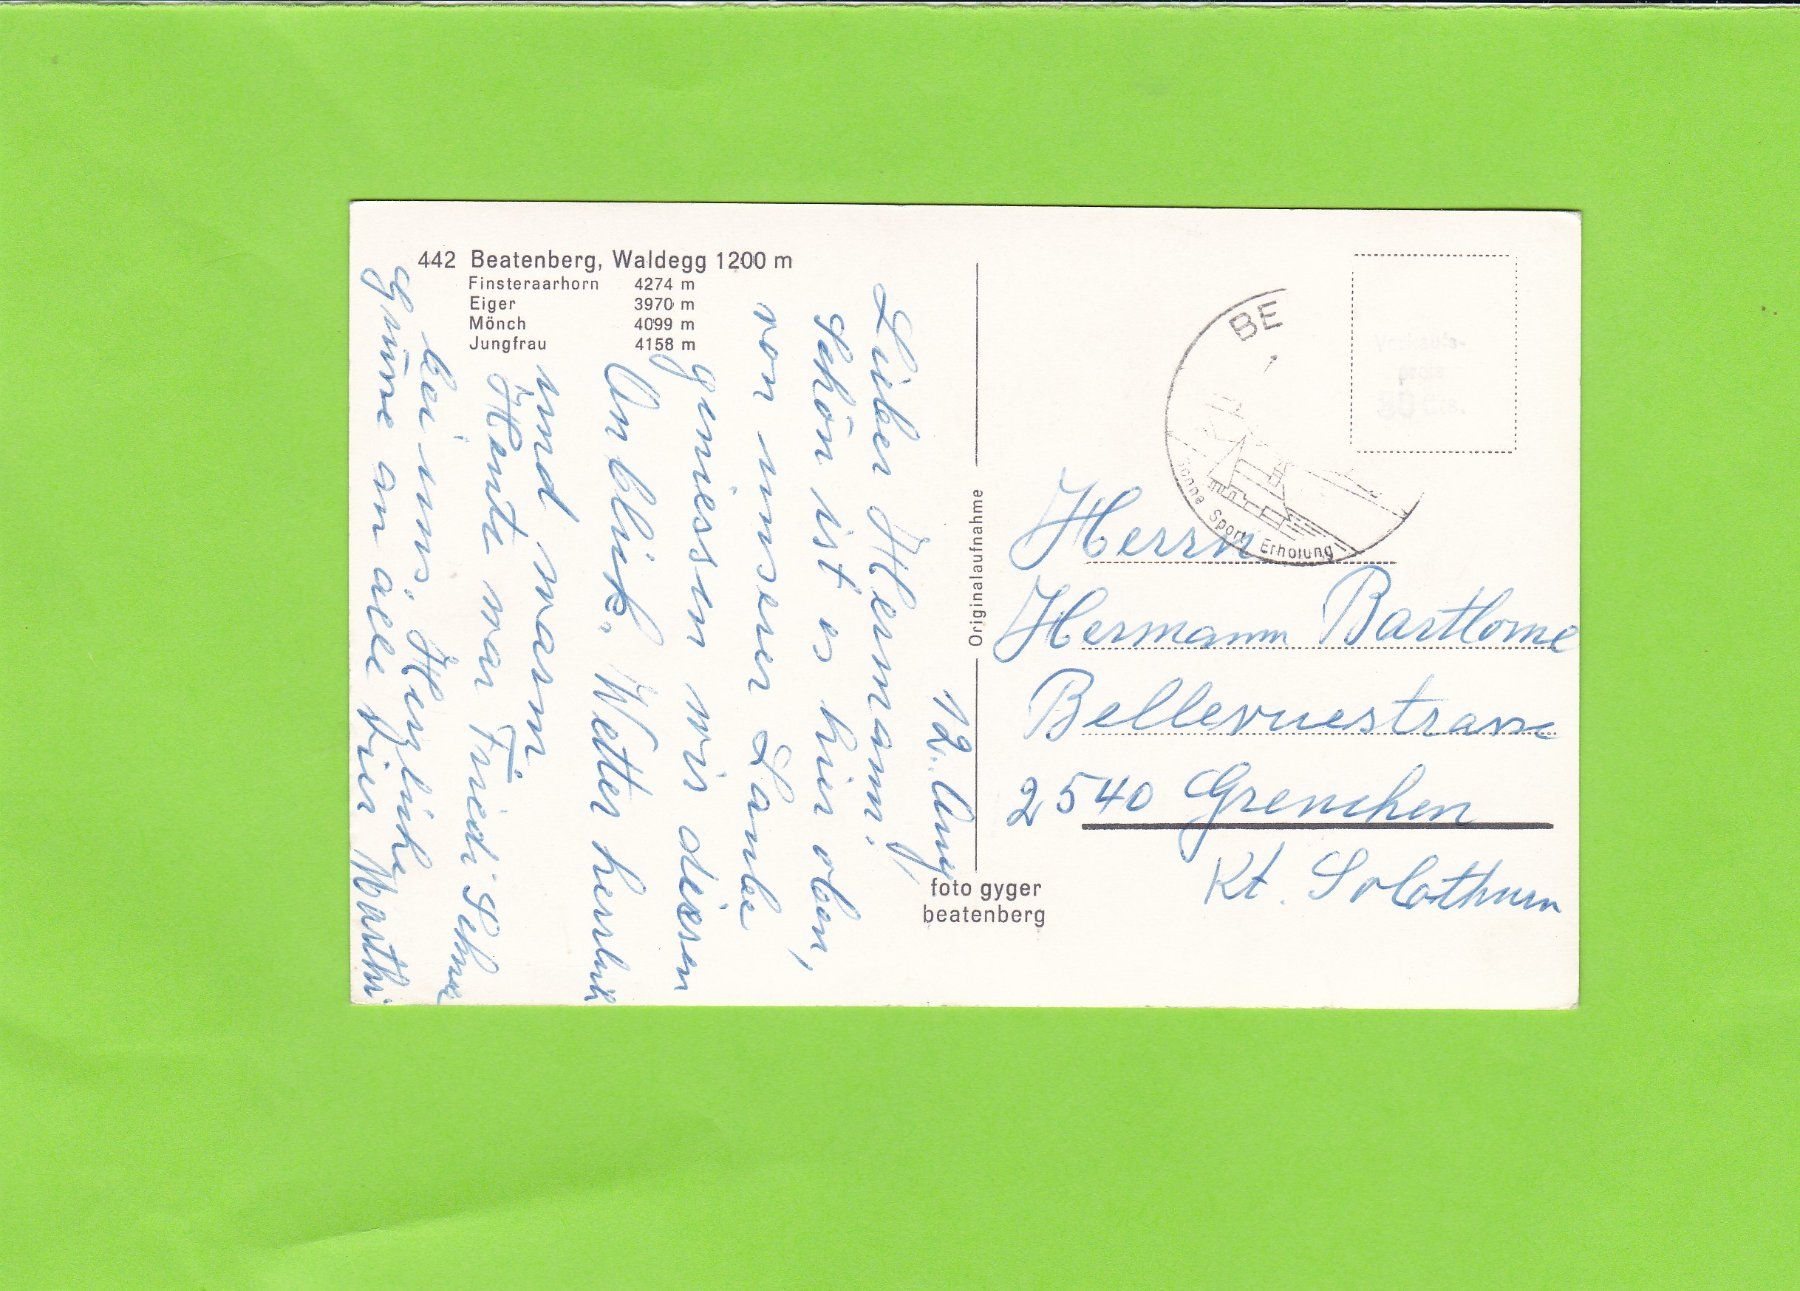 442 Beatenberg, Waldegg 1200 m
Finsteraarhorn 4274 m
Eiger 3970 m
Mönch 4099 m
Jungfrau 4158 m
12. Aug
Lieber Hermann!
Schön ist es hier oben,
von unserer Laube
geniessen wir diesen
Anblick. Wetter herrlich
und warm
Heute war Friedi
bei uns. Herzliche
Grüsse an alle Vier Marthi
Originalaufnahme
foto gyger
beatenberg
BE
Sonne Sport Erholung
Verkaufs-
preis
30 Cts.
Herrn
Hermann Bartlome
Bellevuestrasse
2540 Grenchen
Kt. Solothurn